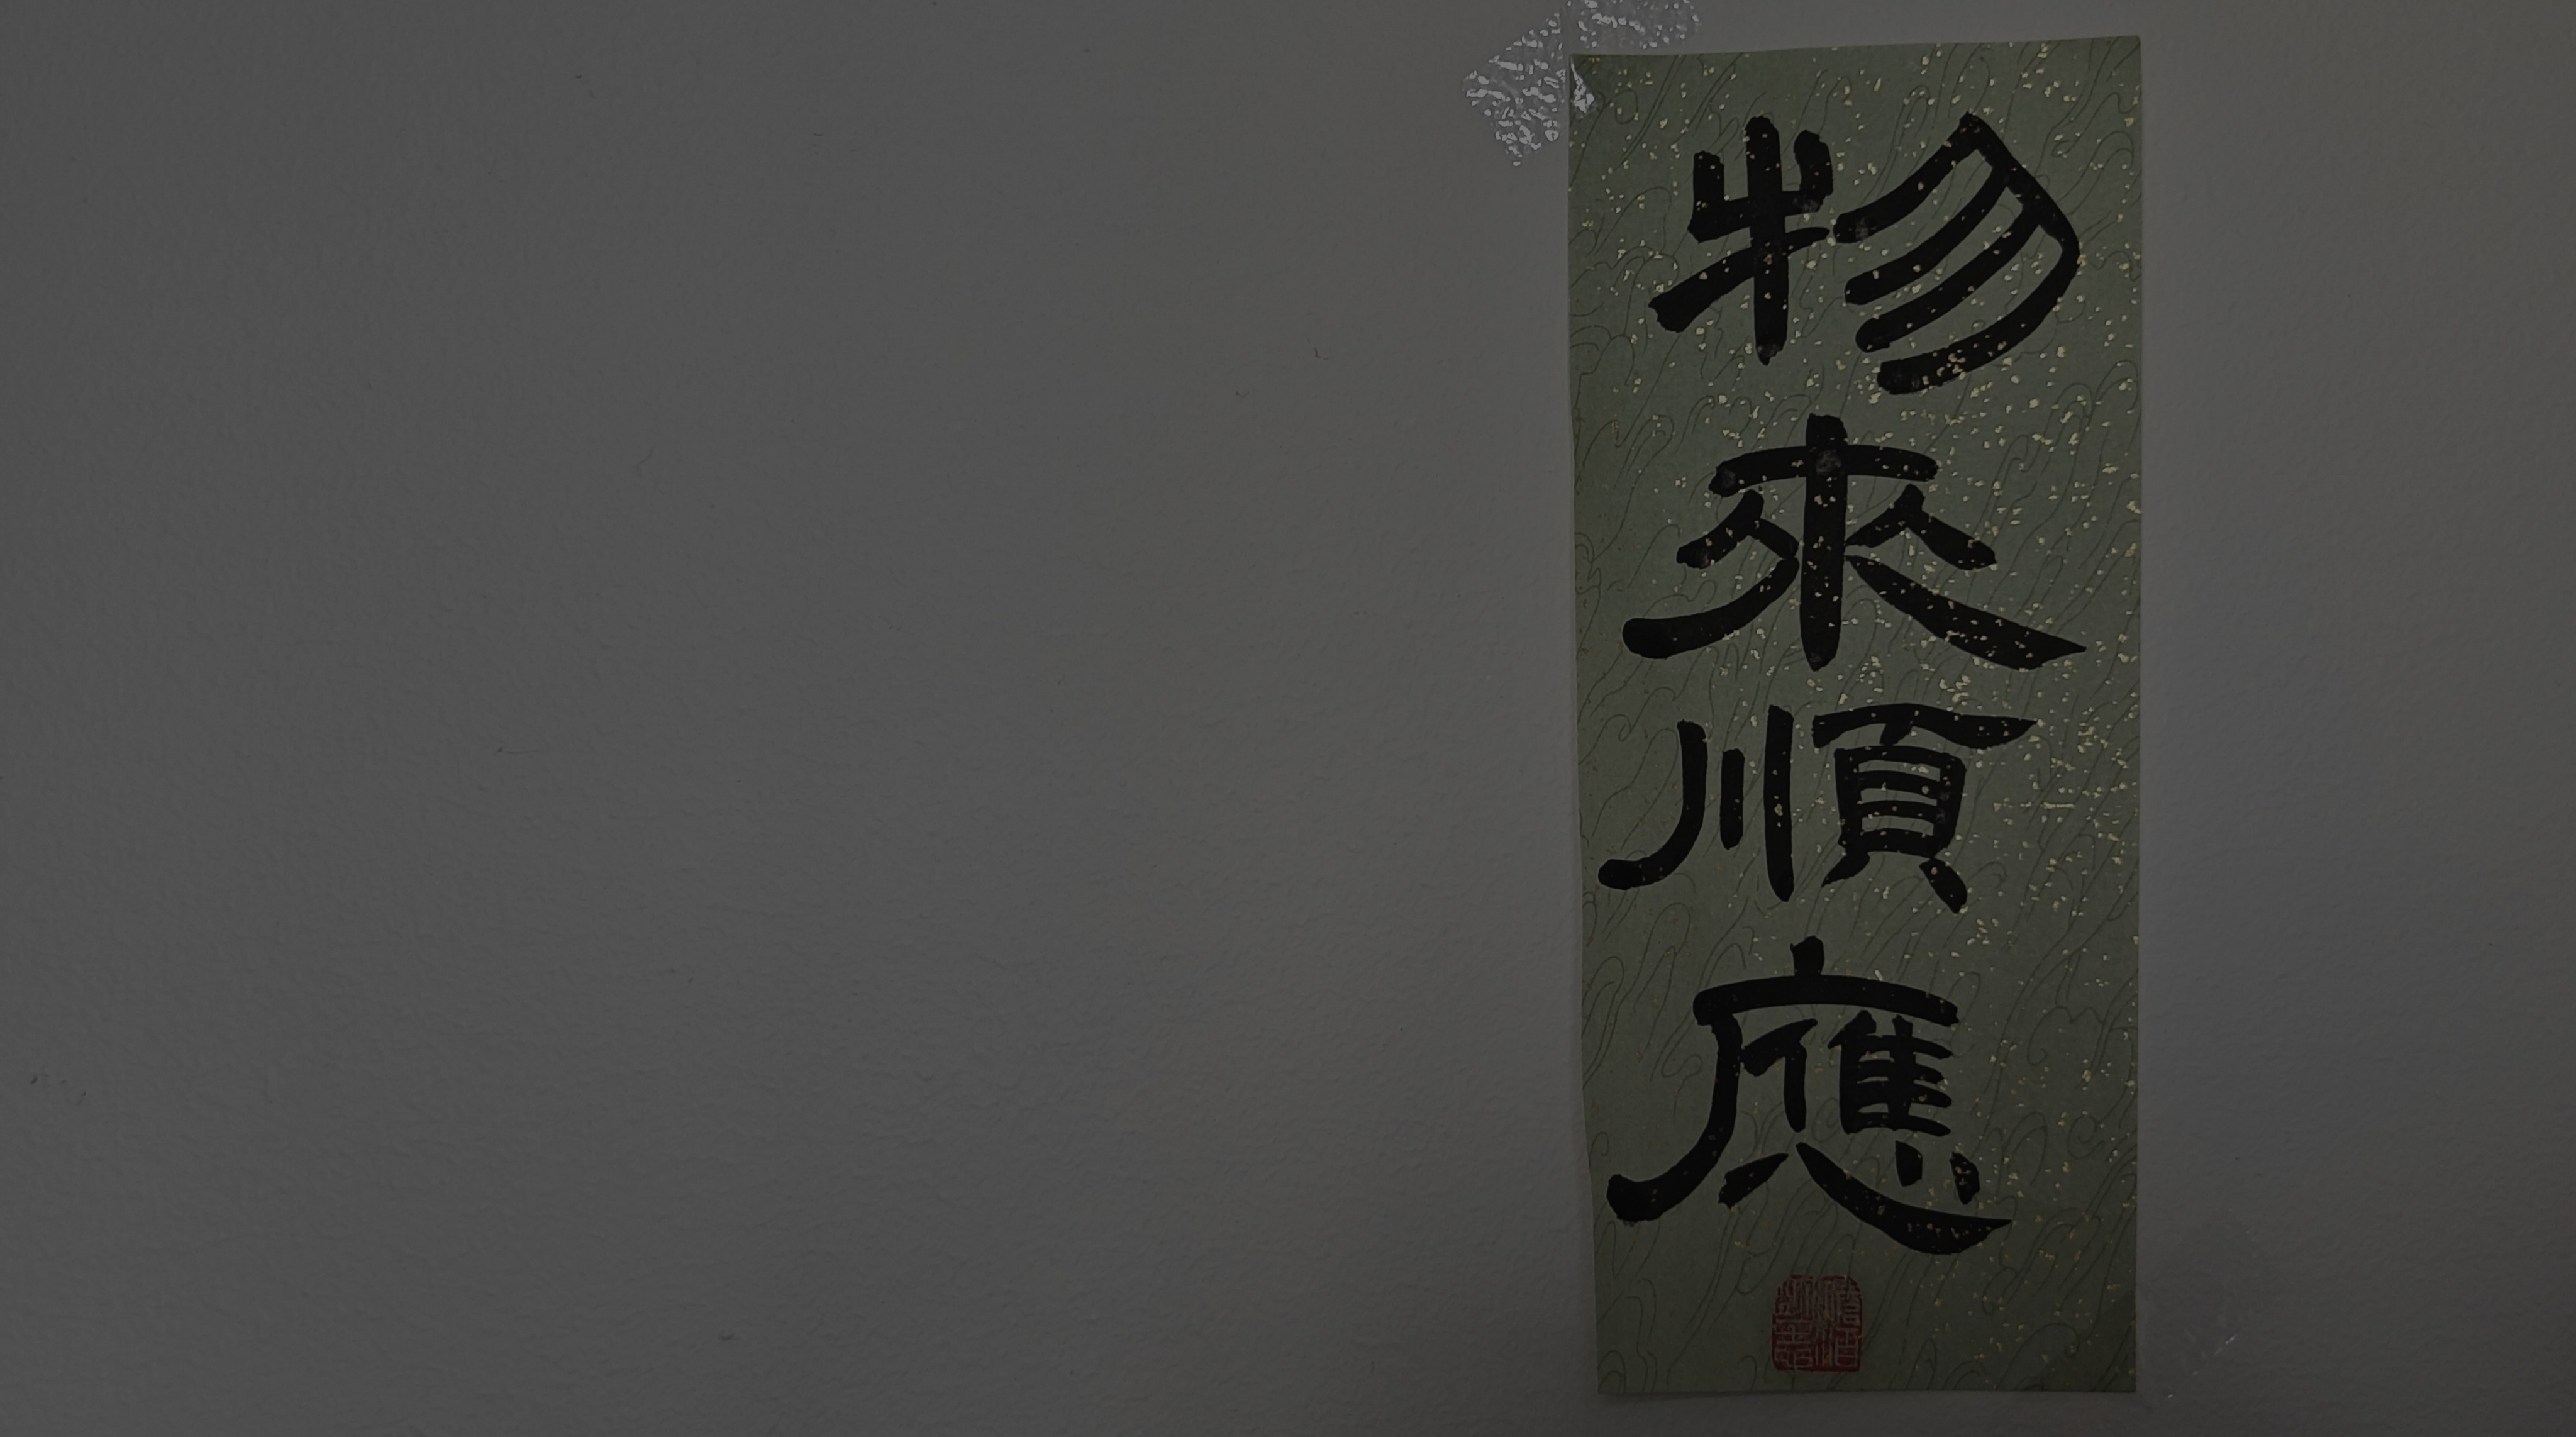 物來順應